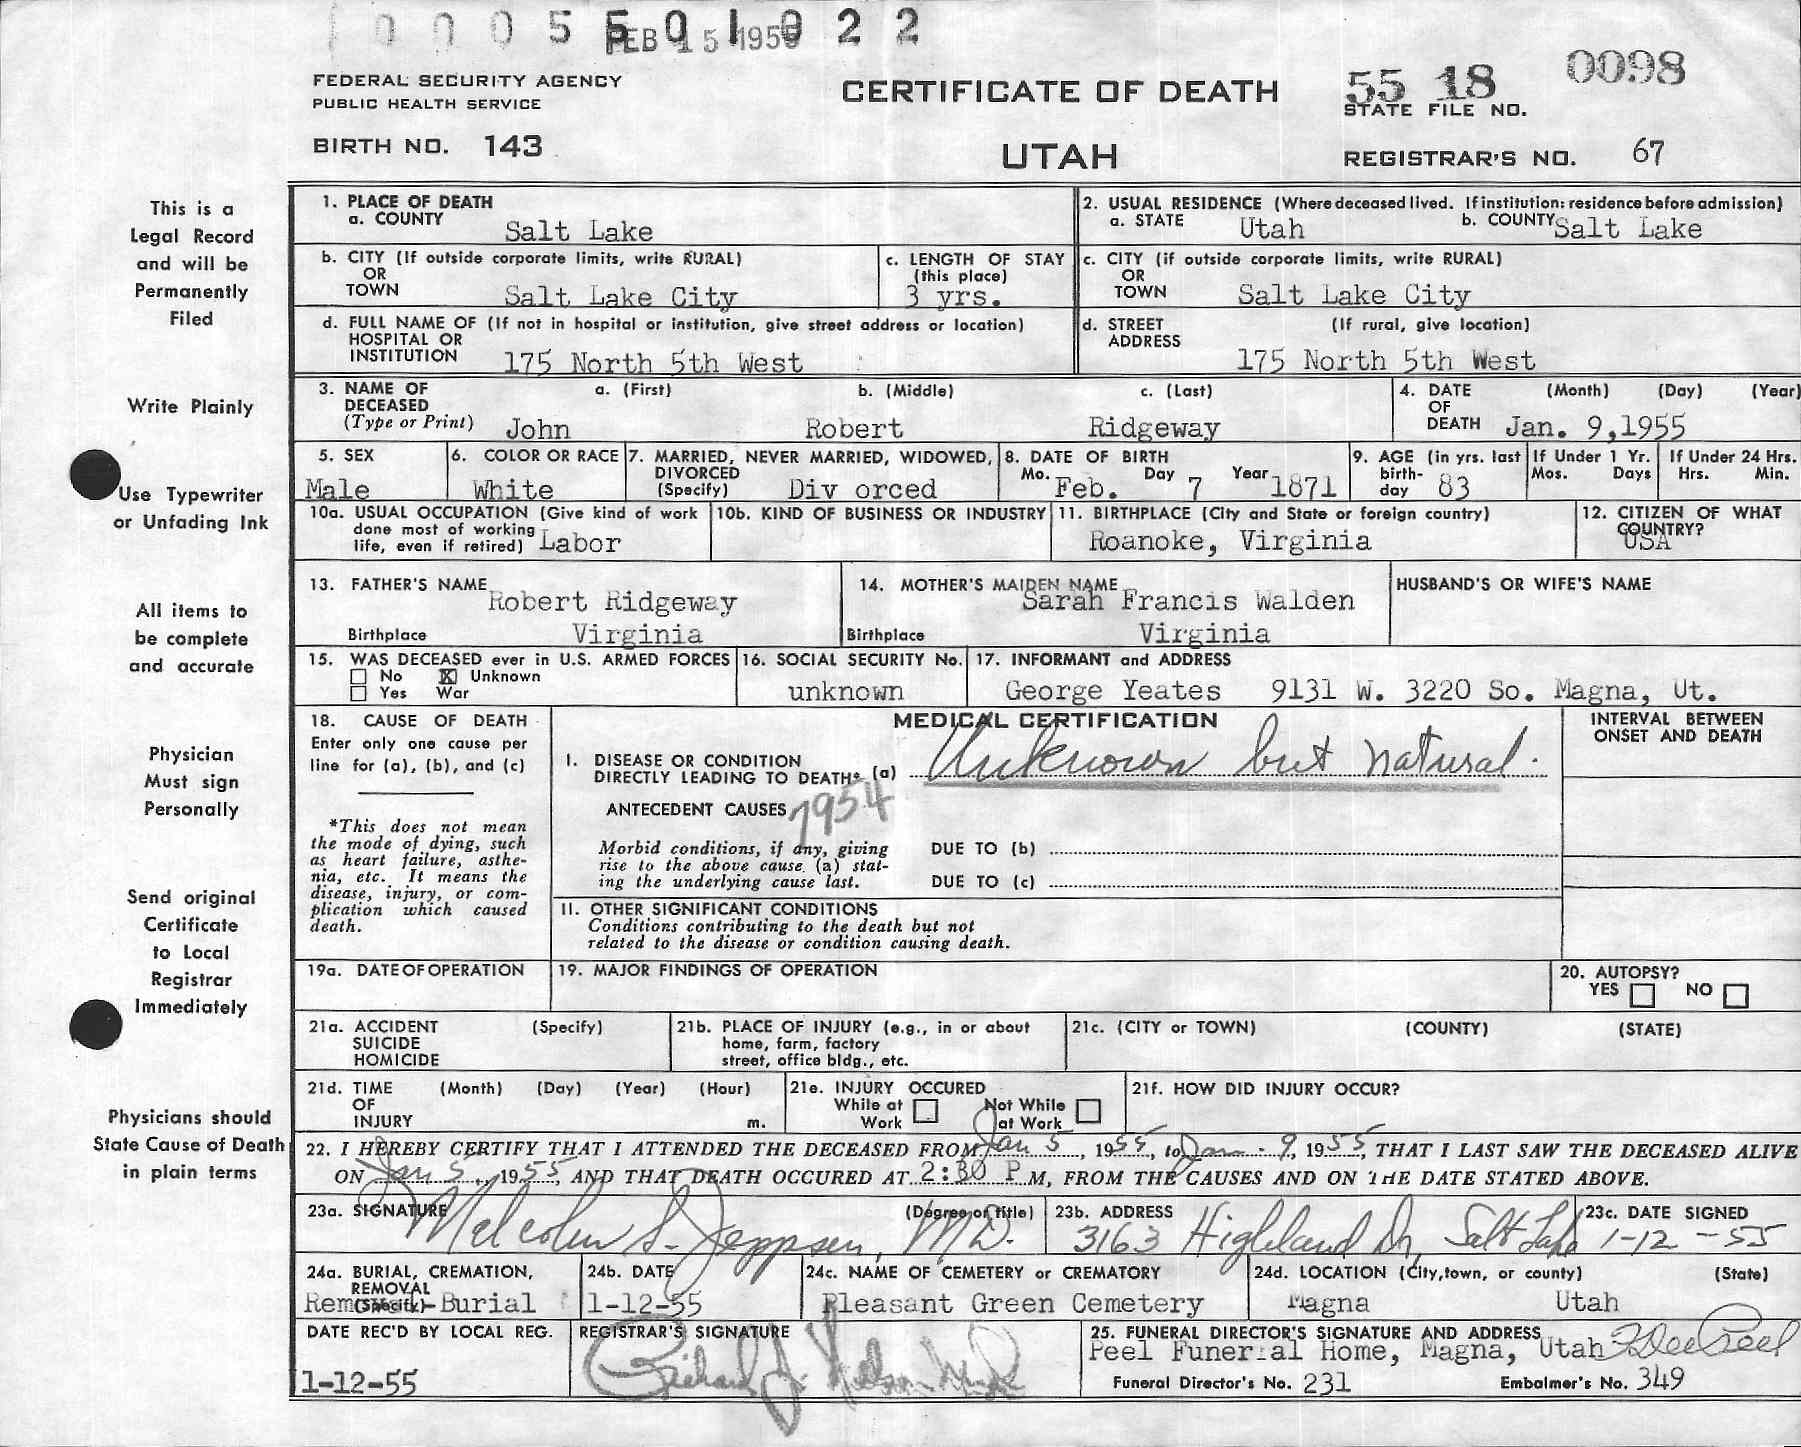 0005501022
FEB 15 195
FEDERAL SECURITY AGENCY
PUBLIC HEALTH SERVICE
BIRTH NO. 143
CERTIFICATE OF DEATH
UTAH
55 18 0098
STATE FILE NO.
REGISTRAR'S NO. 67
This is a
Legal Record
and will be
Permanently
Filed
Write Plainly
Use Typewriter
or Unfading Ink
All items to
be complete
and accurate
Physician
Must sign
Personally
Send original
Certificate
to Local
Registrar
Immediately
Physicians should
State Cause of Death
in plain terms
1. PLACE OF DEATH
a. COUNTY Salt Lake
2. USUAL RESIDENCE (Where deceased lived. If institution: residence before admission)
a. STATE Utah b. COUNTY Salt Lake
b. CITY (If outside corporate limits, write RURAL)
OR
TOWN Salt Lake City
c. LENGTH OF STAY
(this place)
3 yrs.
c. CITY (if outside corporate limits, write RURAL)
OR
TOWN Salt Lake City
d. FULL NAME OF (If not in hospital or institution, give street address or location)
HOSPITAL OR
INSTITUTION 175 North 5th West
d. STREET (If rural, give location)
ADDRESS
175 North 5th West
3. NAME OF a. (First) b. (Middle) c. (Last)
DECEASED
(Type or Print) John Robert Ridgeway
4. DATE (Month) (Day) (Year)
OF
DEATH Jan. 9,1955
5. SEX
Male
6. COLOR OR RACE
White
7. MARRIED, NEVER MARRIED, WIDOWED,
DIVORCED
(Specify) Div orced
8. DATE OF BIRTH
Mo. Feb. Day 7 Year 1871
9. AGE (in yrs. last
birth-
day 83
If Under 1 Yr.
Mos. Days
If Under 24 Hrs.
Hrs. Min.
10a. USUAL OCCUPATION (Give kind of work
done most of working
life, even if retired) Labor
10b. KIND OF BUSINESS OR INDUSTRY
11. BIRTHPLACE (City and State or foreign country)
Roanoke, Virginia
12. CITIZEN OF WHAT
COUNTRY?
USA
13. FATHER'S NAME
Robert Ridgeway
Birthplace Virginia
14. MOTHER'S MAIDEN NAME
Sarah Francis Walden
Birthplace Virginia
HUSBAND'S OR WIFE'S NAME
15. WAS DECEASED ever in U.S. ARMED FORCES
No X Unknown
Yes War
16. SOCIAL SECURITY No.
unknown
17. INFORMANT and ADDRESS
George Yeates 9131 W. 3220 So. Magna, Ut.
18. CAUSE OF DEATH
Enter only one cause per
line for (a), (b), and (c)
*This does not mean
the mode of dying, such
as heart failure, asthe-
nia, etc. It means the
disease, injury, or com-
plication which caused
death.
MEDICAL CERTIFICATION
I. DISEASE OR CONDITION
DIRECTLY LEADING TO DEATH* (a) Unknown but natural.
ANTECEDENT CAUSES 7954
Morbid conditions, if any, giving
rise to the above cause (a) stat-
ing the underlying cause last.
DUE TO (b)
DUE TO (c)
INTERVAL BETWEEN
ONSET AND DEATH
II. OTHER SIGNIFICANT CONDITIONS
Conditions contributing to the death but not
related to the disease or condition causing death.
19a. DATE OF OPERATION
19. MAJOR FINDINGS OF OPERATION
20. AUTOPSY?
YES NO
21a. ACCIDENT (Specify)
SUICIDE
HOMICIDE
21b. PLACE OF INJURY (e.g., in or about
home, farm, factory
street, office bldg., etc.
21c. (CITY or TOWN) (COUNTY) (STATE)
21d. TIME (Month) (Day) (Year) (Hour)
OF
INJURY m.
21e. INJURY OCCURED
While at Not While
Work at Work
21f. HOW DID INJURY OCCUR?
22. I HEREBY CERTIFY THAT I ATTENDED THE DECEASED FROM Jan 5, 1955, to Jan. 9, 1955, THAT I LAST SAW THE DECEASED ALIVE
ON Jan 5, 1955, AND THAT DEATH OCCURED AT 2:30 P M, FROM THE CAUSES AND ON THE DATE STATED ABOVE.
23a. SIGNATURE (Degree or title)
Malcolm S. Jeppsen, MD.
23b. ADDRESS
3163 Highland Dr, Salt Lake
23c. DATE SIGNED
1-12-55
24a. BURIAL, CREMATION,
REMOVAL
(Specify)
Removal-Burial
24b. DATE
1-12-55
24c. NAME OF CEMETERY or CREMATORY
Pleasant Green Cemetery
24d. LOCATION (City, town, or county) (State)
Magna Utah
DATE REC'D BY LOCAL REG.
1-12-55
REGISTRAR'S SIGNATURE
Richard J. Nelson
25. FUNERAL DIRECTOR'S SIGNATURE AND ADDRESS
Peel Funeral Home, Magna, Utah Dee Peel
Funeral Director's No. 231 Embalmer's No. 349